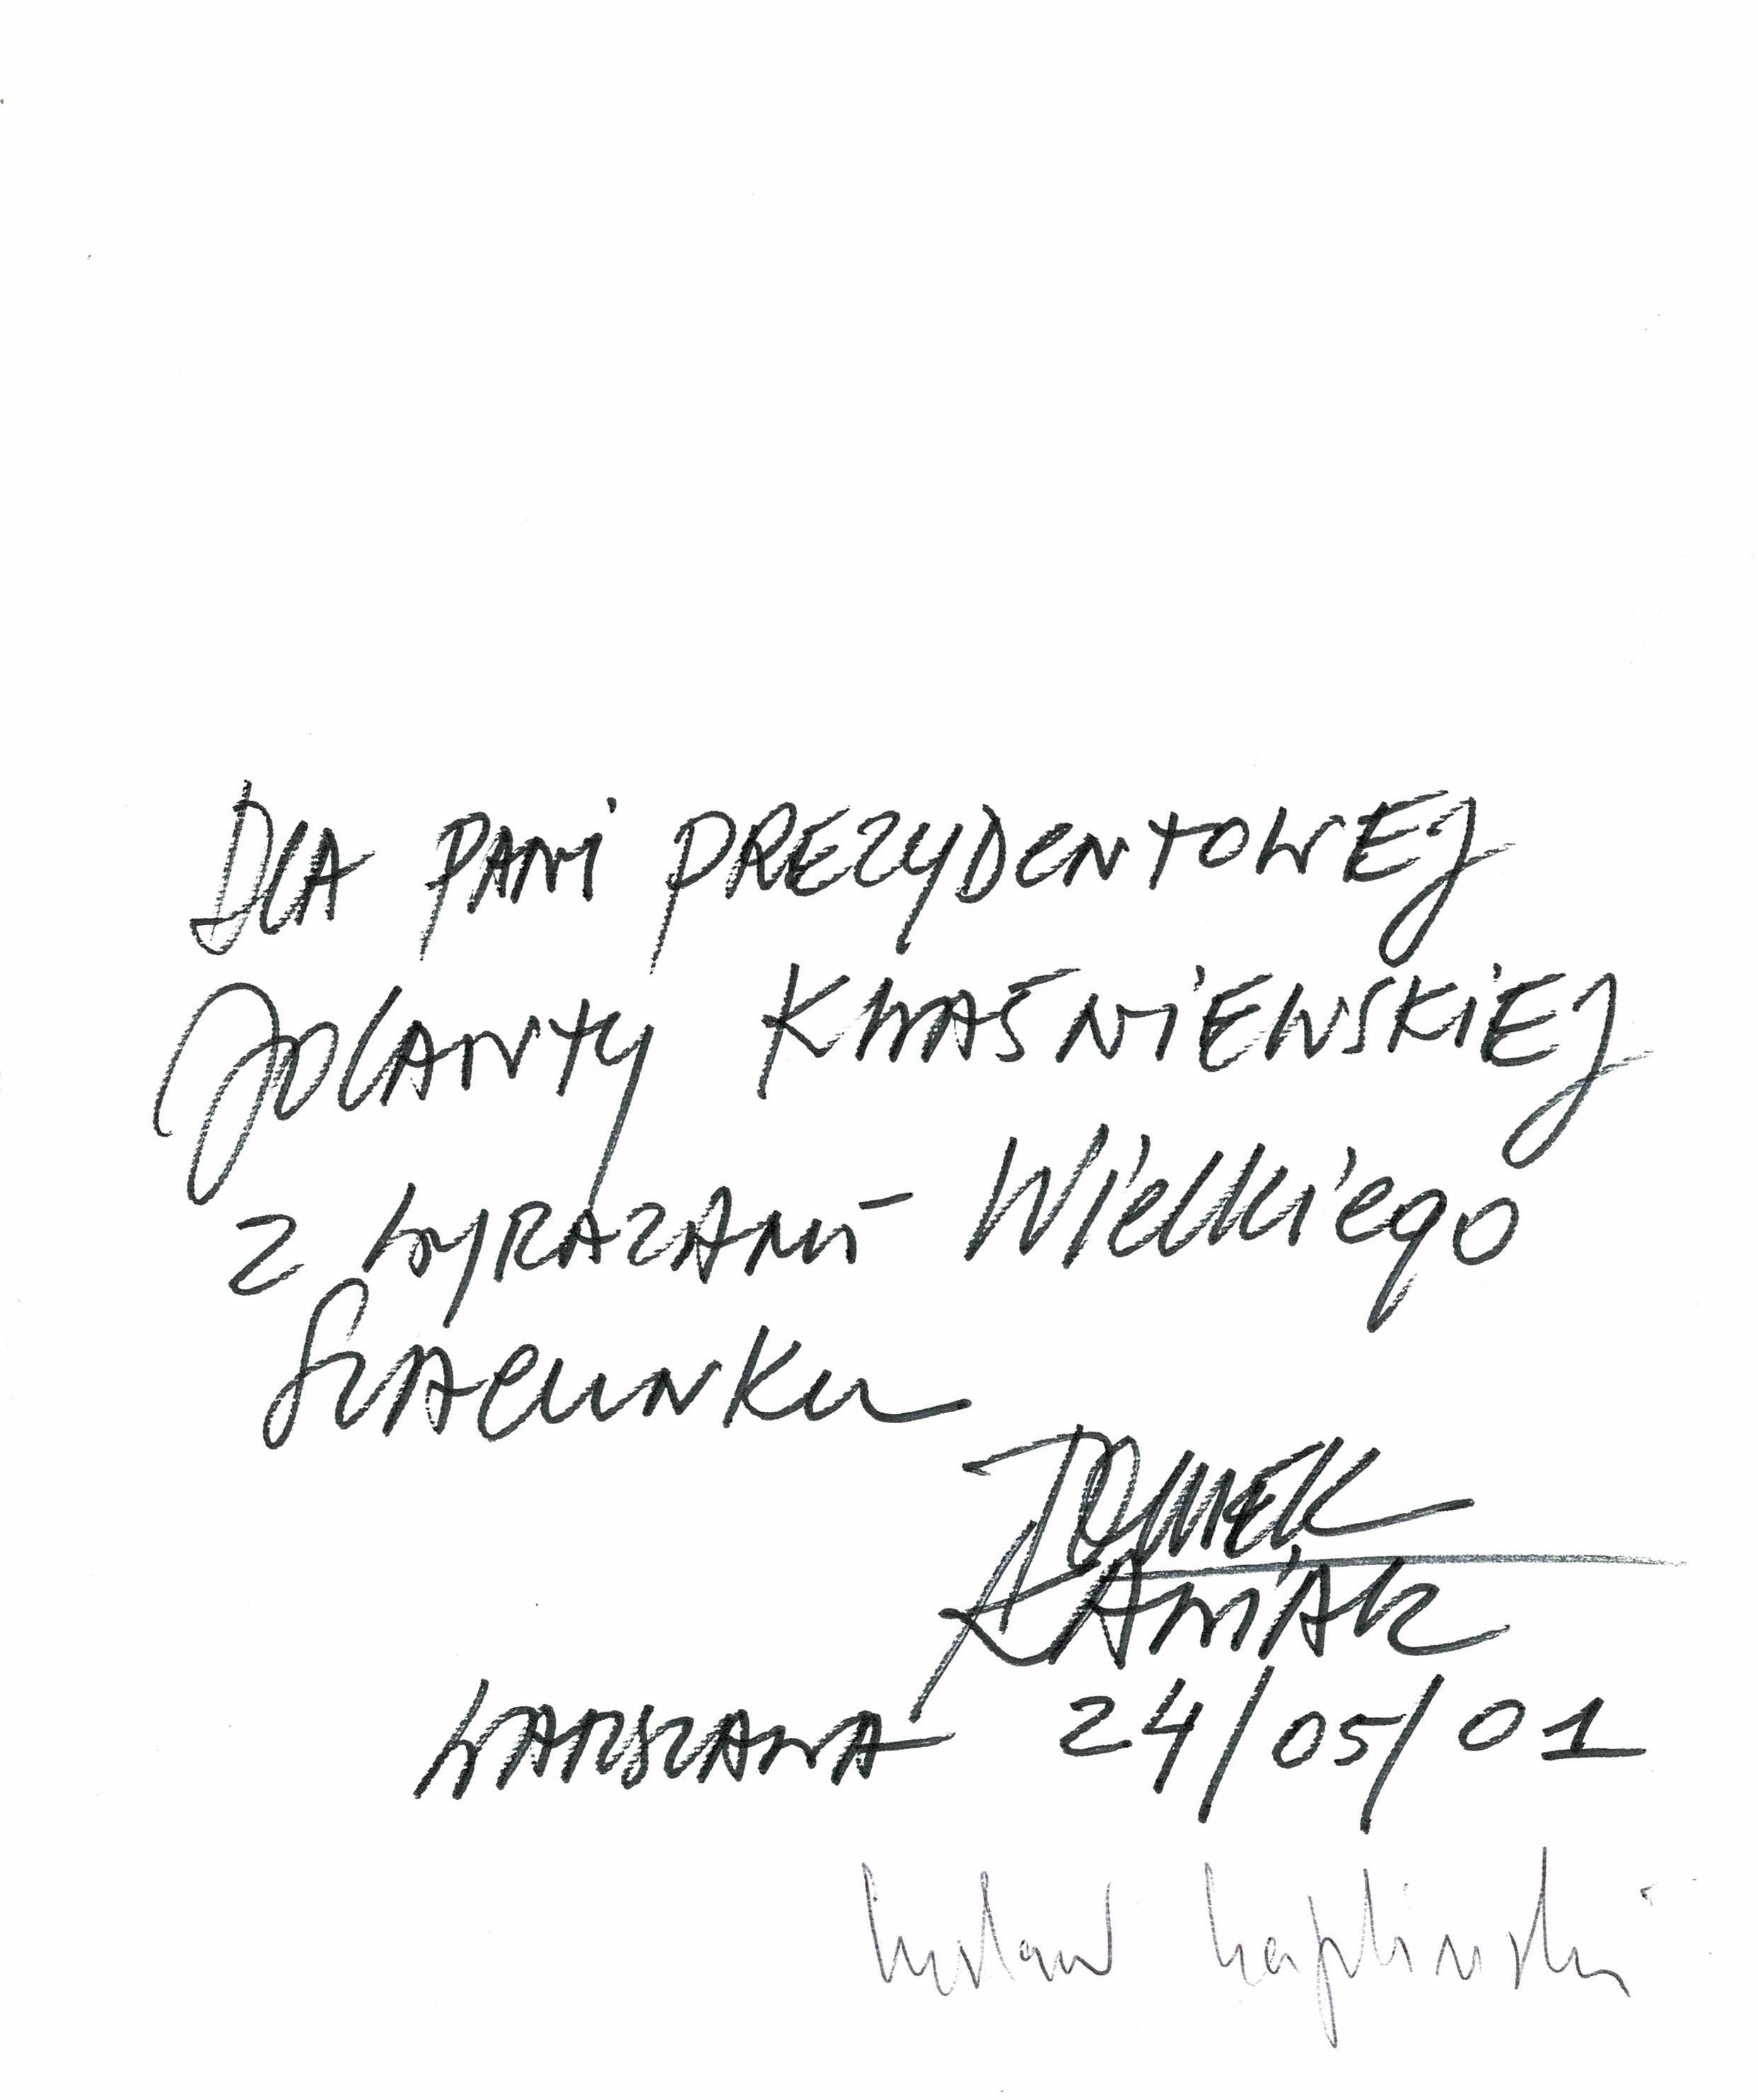 DLA PANI PREZYDENTOWEJ
JOLANTY KWAŚNIEWSKIEJ
Z WYRAZAMI WIELKIEGO
SZACUNKU
TOMEK
KAWIAK
WARSZAWA 24/05/01